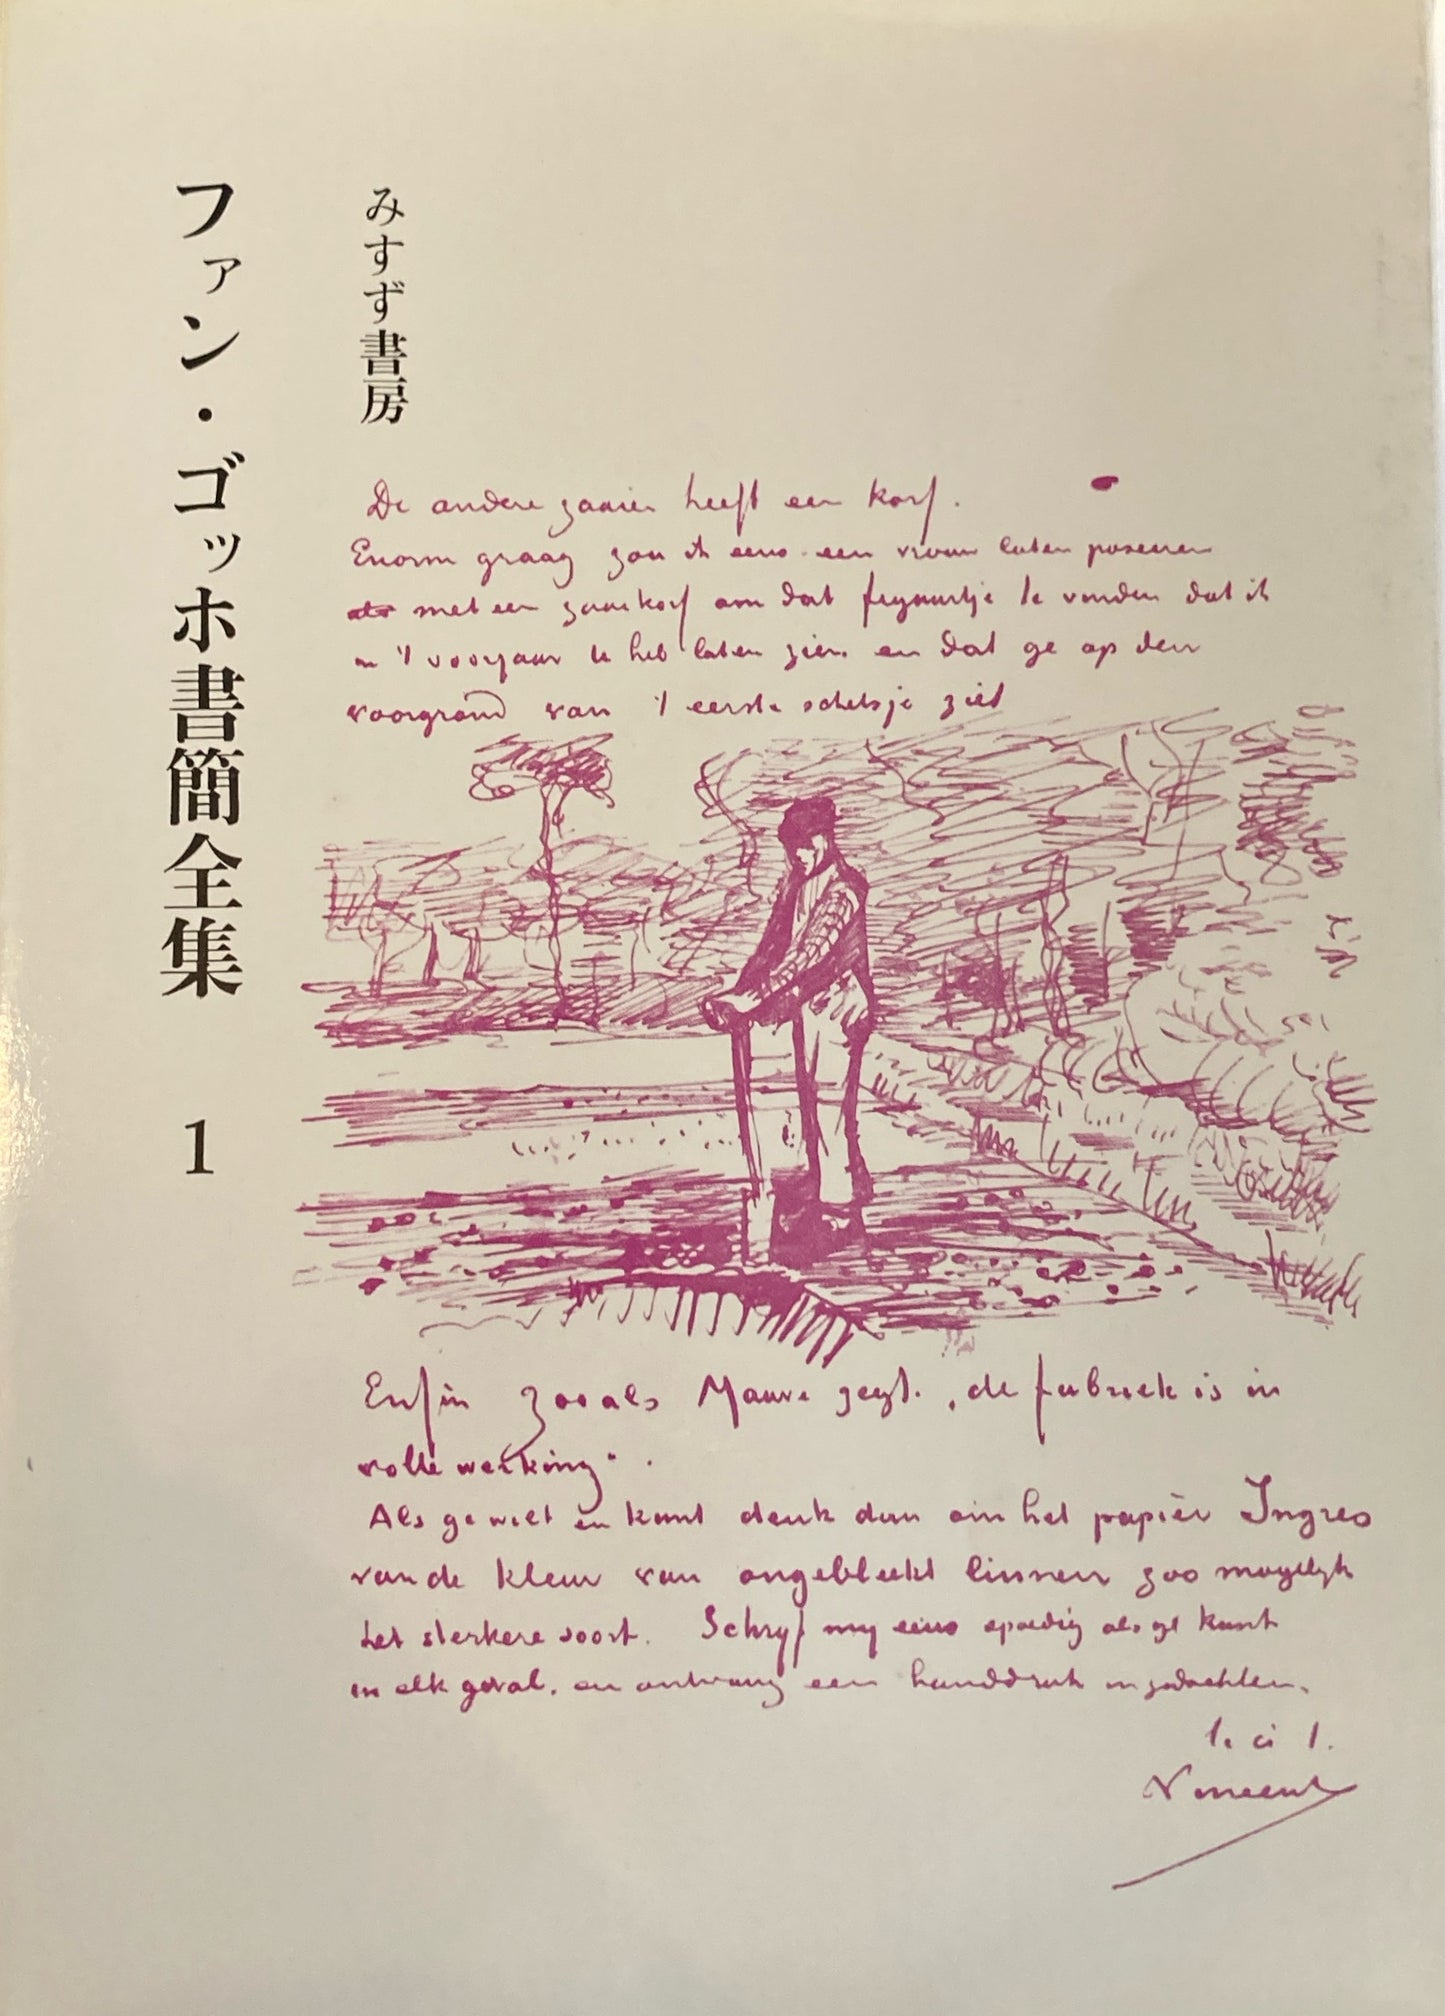 ファン・ゴッホ書簡全集 1
みすず書房
De andere zaaier heeft een korf.
Enorm graag zou ik eens een vrouw laten poseeren
met een zaaikorf om dat figuurtje te vinden dat ik
in 't voorjaar U heb laten zien en dat ge op den
voorgrond van 't eerste schetsje ziet
Enfin zooals Mauve zegt. „de fabriek is in
volle werking".
Als ge wilt en kunt denk dan om het papier Ingres
van de kleur van ongebleekt linnen zoo mogelyk
het sterkere soort. Schryf my eens spoedig als ge kunt
in elk geval, en ontvang een handdruk in gedachten.
t. à t.
Vincent